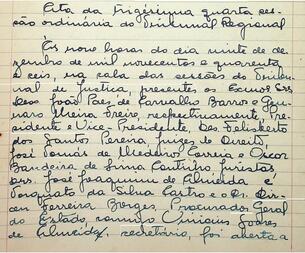 Acta da trigésima quarta ses-
são ordinária do Tribunal Regional
Ás nove horas do dia vinte de de-
zembro de mil novecentos e quarenta
e seis, na sala das sessões do Tribu-
nal de Justiça, presentes os Exmos. Srs.
Des. João Paes de Carvalho Barros e Ge-
naro Meira Freire, respectivamente, Pre-
sidente e Vice-Presidente, Des. Felisberto
dos Santos Pereira, juizes de Direito,
José Tomás de Medeiros Correia e Oscar
Bandeira de Lima Coutinho, juristas
drs. José Joaquim de Almeida e
Torquato da Silva Castro e o Dr. Dir-
ceu Ferreira Borges, Procurador Geral
do Estado, comigo Vinicius Soares
de Almeida, secretário, foi aberta a